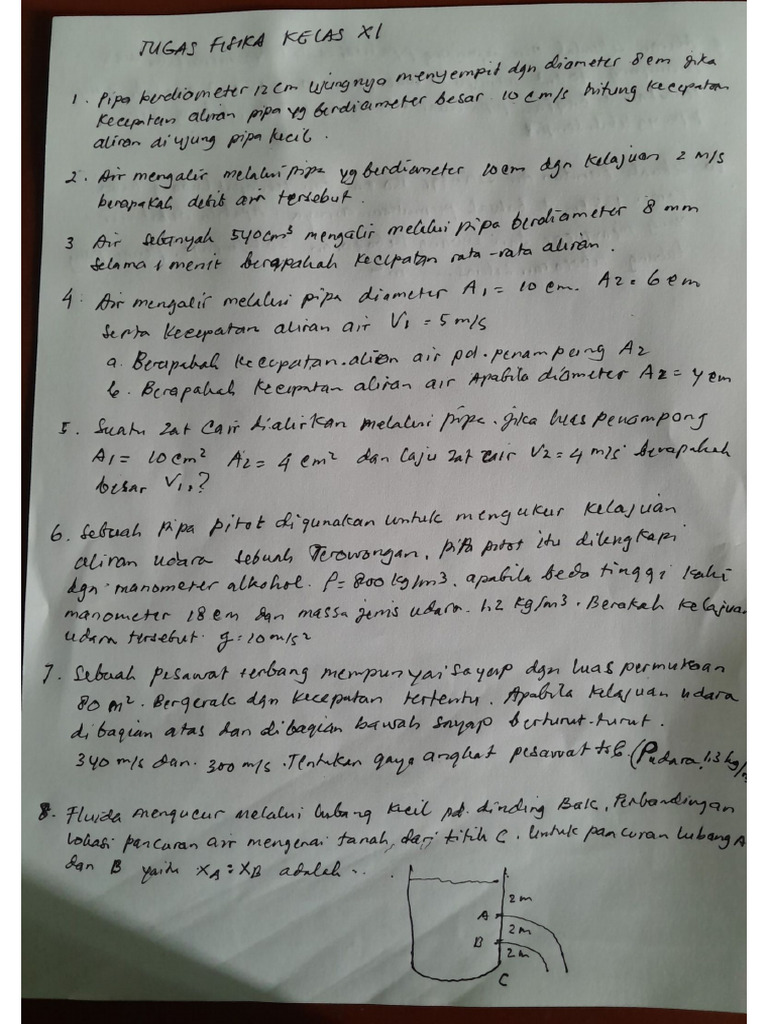 TUGAS FISIKA KELAS XI
1. Pipa berdiameter 12 cm ujungnya menyempit dgn diameter 8 cm jika
kecepatan aliran pipa yg berdiameter besar 10 cm/s hitung kecepatan
aliran di ujung pipa kecil.
2. Air mengalir melalui pipa yg berdiameter 10 cm dgn kelajuan 2 m/s
berapakah debit air tersebut.
3 Air sebanyak 540 cm³ mengalir melalui pipa berdiameter 8 mm
selama 1 menit berapakah kecepatan rata-rata aliran.
4. Air mengalir melalui pipa diameter A1 = 10 cm. A2 = 6 cm
serta kecepatan aliran air V1 = 5 m/s
a. Berapakah kecepatan aliran air pd. penampang A2
b. Berapakah kecepatan aliran air Apabila diameter A2 = 4 cm
5. Suatu zat cair dialirkan melalui pipa. jika luas penampang
A1 = 10 cm² A2 = 4 cm² dan laju zat cair V2 = 4 m/s berapakah
besar V1,?
6. Sebuah pipa pitot digunakan untuk mengukur kelajuan
aliran udara sebuah Terowongan, pipa pitot itu dilengkapi
dgn manometer alkohol. ρ = 800 kg/m3. apabila beda tinggi kaki
manometer 18 cm dan massa jenis udara 1.2 kg/m3. Berakah kelajua
udara tersebut. g = 10 m/s²
7. Sebuah pesawat terbang mempunyai sayap dgn luas permukaan
80 m². Bergerak dgn kecepatan tertentu. Apabila kelajuan udara
di bagian atas dan dibagian bawah sayap berturut-turut.
340 m/s dan 300 m/s. Tentukan gaya angkat pesawat tsb. (ρ udara 1.3 kg/m
8. Fluida mengucur melalui lubang kecil pd. dinding Bak, Perbandingan
lokasi pancuran air mengenai tanah, dari titik C. Untuk pancuran lubang A
dan B yaitu XA : XB adalah ...
2 m
A
2 m
B
2 m
C